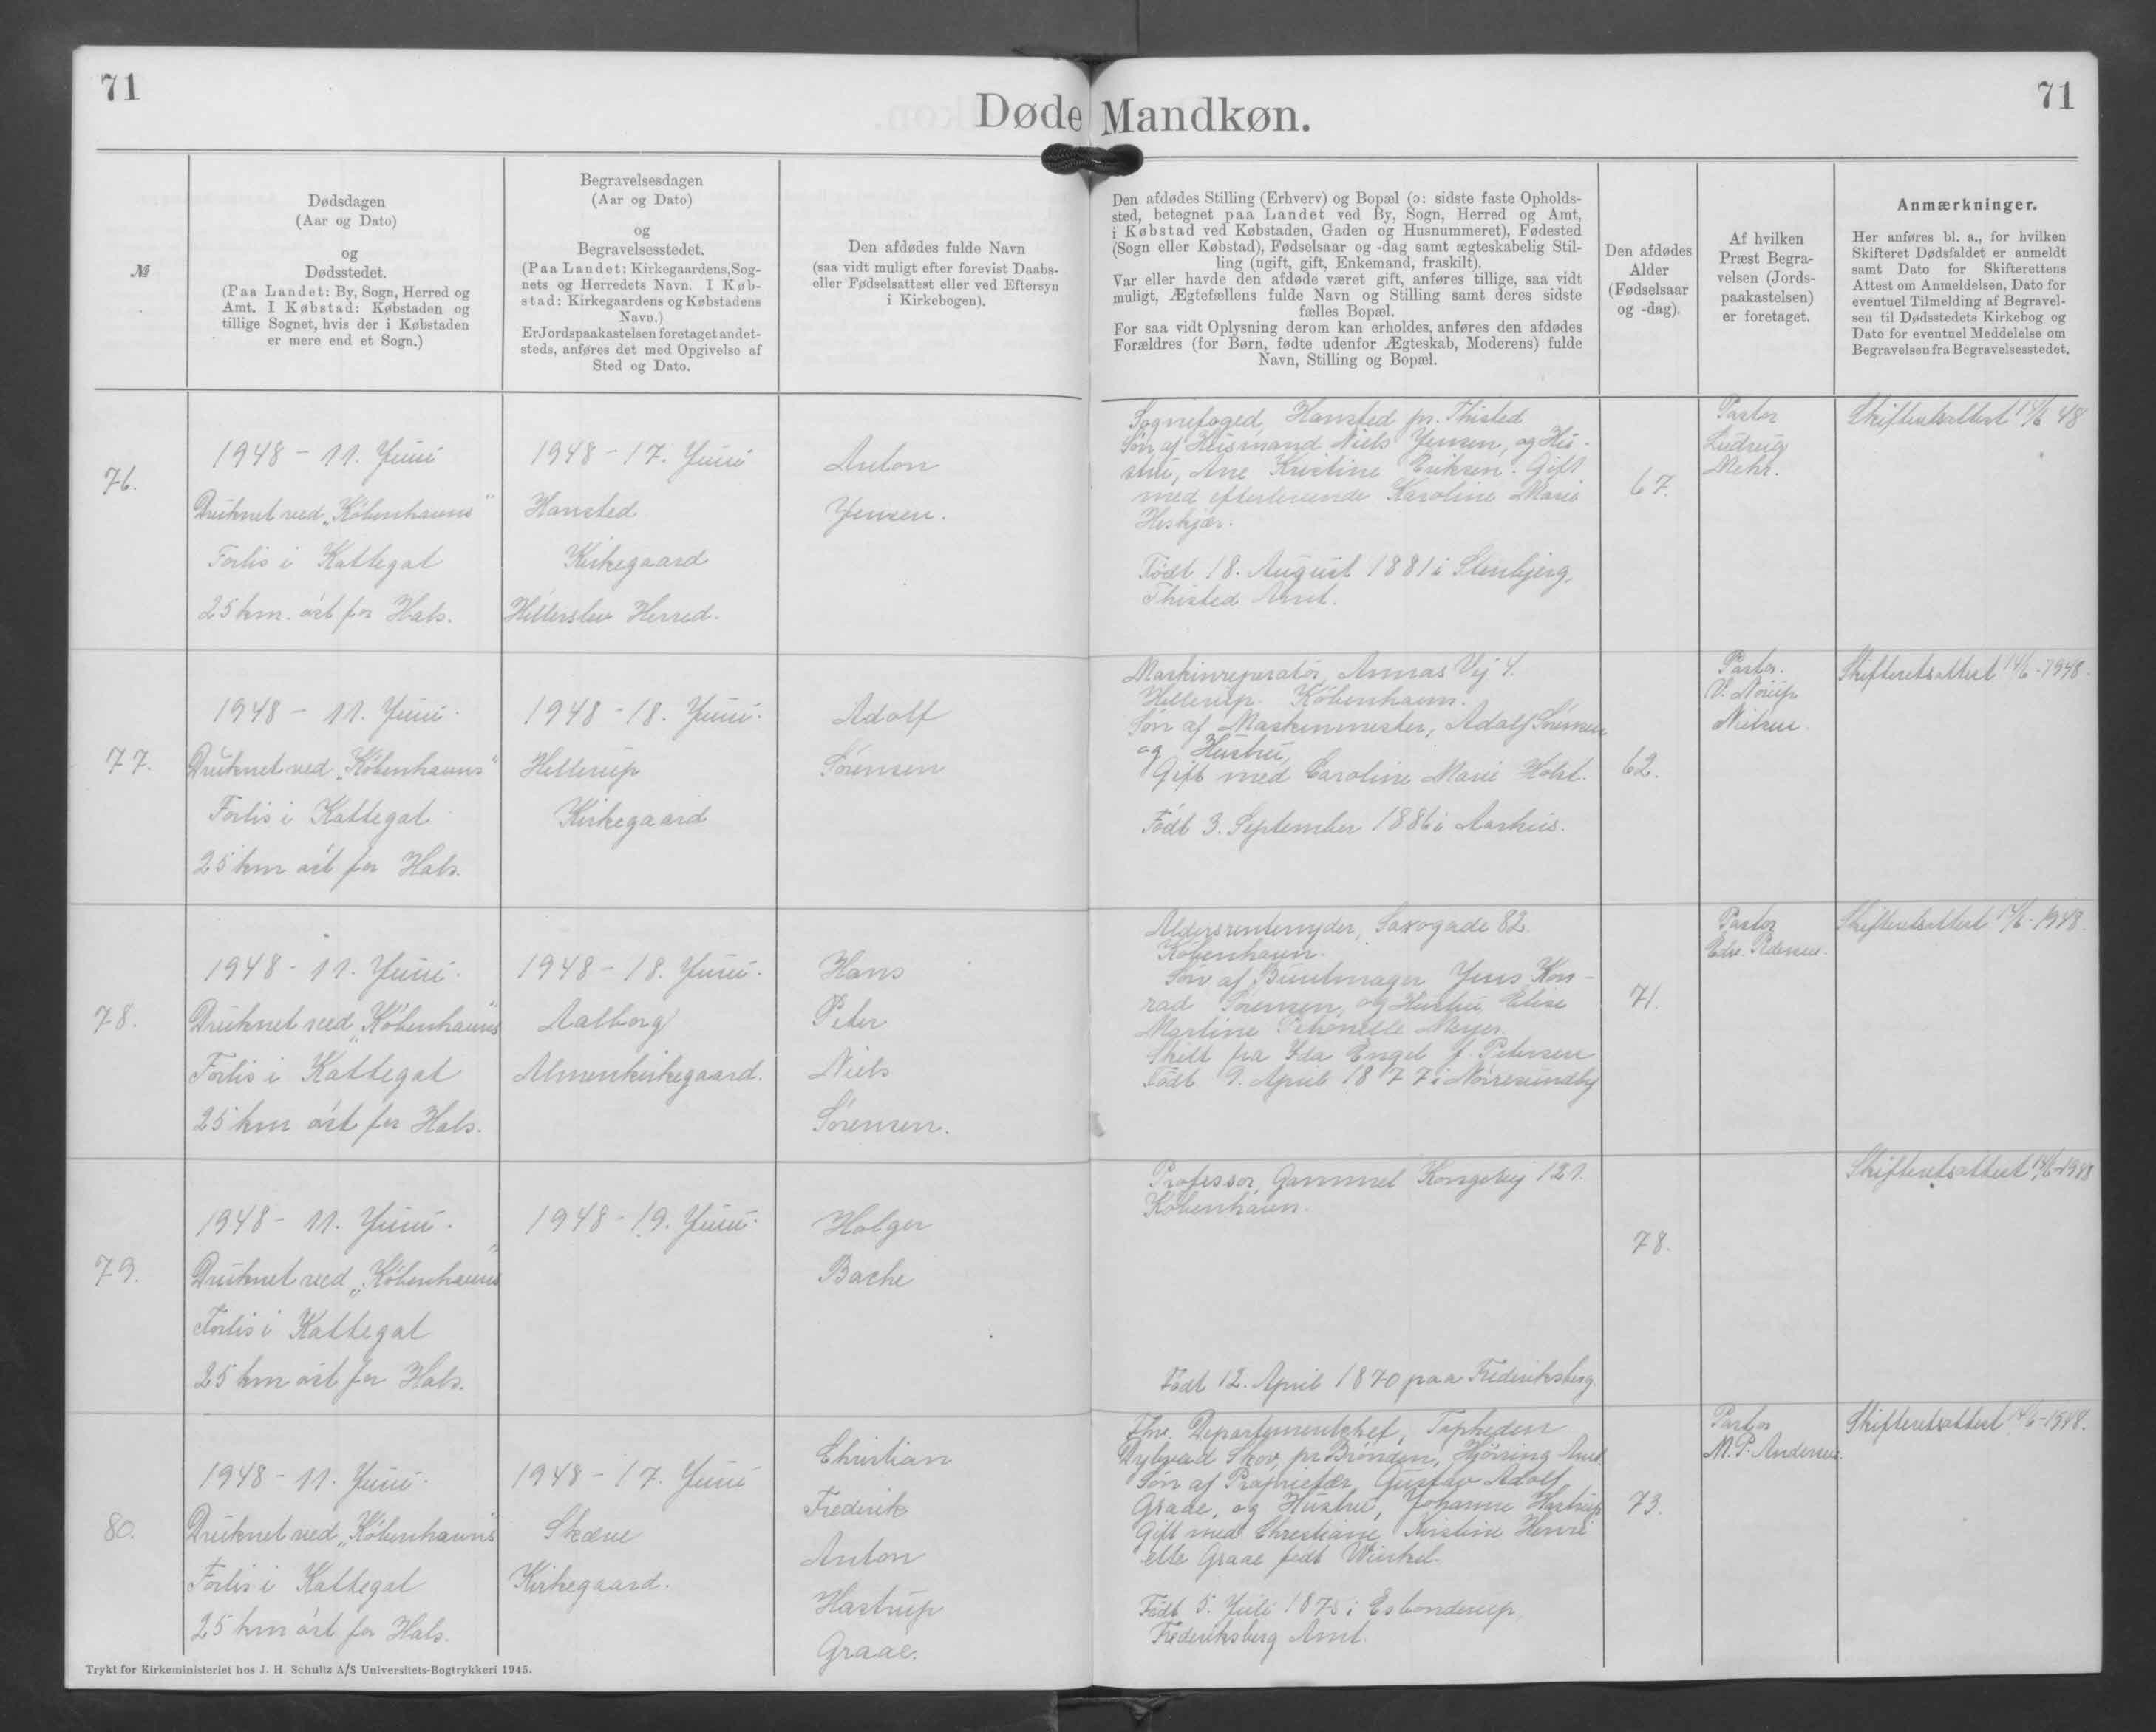 71
71
Døde Mandkøn.
№
Dødsdagen
(Aar og Dato)
og
Dødsstedet.
(Paa Landet: By, Sogn, Herred og
Amt. I Købstad: Købstaden og
tillige Sognet, hvis der i Købstaden
er mere end et Sogn.)
Begravelsesdagen
(Aar og Dato)
og
Begravelsesstedet.
(Paa Landet: Kirkegaardens, Sog-
nets og Herredets Navn. I Køb-
stad: Kirkegaardens og Købstadens
Navn.)
Er Jordspaakastelsen foretaget andet-
steds, anføres det med Opgivelse af
Sted og Dato.
Den afdødes fulde Navn
(saa vidt muligt efter forevist Daabs-
eller Fødselsattest eller ved Eftersyn
i Kirkebogen).
Den afdødes Stilling (Erhverv) og Bopæl (ɔ: sidste faste Opholds-
sted, betegnet paa Landet ved By, Sogn, Herred og Amt,
i Købstad ved Købstaden, Gaden og Husnummeret), Fødested
(Sogn eller Købstad), Fødselsaar og -dag samt ægteskabelig Stil-
ling (ugift, gift, Enkemand, fraskilt).
Var eller havde den afdøde været gift, anføres tillige, saa vidt
muligt, Ægtefællens fulde Navn og Stilling samt deres sidste
fælles Bopæl.
For saa vidt Oplysning derom kan erholdes, anføres den afdødes
Forældres (for Børn, fødte udenfor Ægteskab, Moderens) fulde
Navn, Stilling og Bopæl.
Den afdødes
Alder
(Fødselsaar
og -dag).
Af hvilken
Præst Begra-
velsen (Jords-
paakastelsen)
er foretaget.
Anmærkninger.
Her anføres bl. a., for hvilken
Skifteret Dødsfaldet er anmeldt
samt Dato for Skifterettens
Attest om Anmeldelsen, Dato for
eventuel Tilmelding af Begravel-
sen til Dødsstedets Kirkebog og
Dato for eventuel Meddelelse om
Begravelsen fra Begravelsesstedet.
76.
1948 - 11. Juni
Druknet ved „Københavns"
Forlis i Kattegat
25 km. øst for Hals.
1948 - 17. Juni
Hansted
Kirkegaard
Hillerslev Herred.
Anton
Jensen.
Sognefoged, Hansted pr. Thisted
Søn af Husmand Niels Jensen, og Hu-
stru, Ane Kristine Eriksen. Gift
med efterlevende Karoline Marie
Heskjær.
Født 18. August 1881 i Stenbjerg,
Thisted Amt.
67.
Pastor
Ludvig
Mehr.
Skifteretsattest 14/6 48
77.
1948 - 11. Juni
Druknet ved „Københavns"
Forlis i Kattegat
25 km øst for Hals.
1948 - 18. Juni.
Hellerup
Kirkegaard
Adolf
Sørensen
Maskinreparatør, Annas Vej 4.
Hellerup. København.
Søn af Maskinmester, Adolf Sørensen
og Hustru,
Gift med Caroline Marie Holst.
Født 3. September 1886 i Aarhus.
62.
Pastor.
V. Norup
Nielsen.
Skifteretsattest 14/6-1948.
78.
1948 - 11. Juni.
Druknet ved „Københavns"
Forlis i Kattegat
25 km øst for Hals.
1948 - 18. Juni.
Aalborg
Almenkirkegaard.
Hans
Peter
Niels
Sørensen.
Aldersrentenyder, Saxogade 82.
København.
Søn af Buntmager Jens Kon-
rad Sørensen, og Hustru Elise
Martine Petronelle Meyer.
Skilt fra Ida Engel f. Petersen
Født 9. April 1877 i Nørresundby
71.
Pastor
Edv. Pedersen.
Skifteretsattest 14/6-1948.
79.
1948 - 11. Juni.
Druknet ved „Københavns"
Forlis i Kattegat
25 km øst for Hals.
1948 - 19. Juni.
Holger
Bache
Professor, Gammel Kongevej 121.
København.
Født 12. April 1870 paa Frederiksberg.
78.
Skifteretsattest 14/6-1948
80.
1948 - 11. Juni.
Druknet ved „Københavns
Forlis i Kattegat
25 km øst for Hals.
1948 - 17. Juni
Skæve
Kirkegaard.
Christian
Frederik
Anton
Hastrup
Graae.
Fhv. Departementchef, Tapheden
Dybvad Skov, pr Brønden, Hjørring Amt.
Søn af Proprietær Gustav Adolf
Graae, og Hustru, Johanne Hastrup
Gift med Christiane Kirstine Henri
ette Graae født Winkel.
Født 5. Juli 1875 i Esbonderup,
Frederiksberg Amt.
73.
Pastor
M. P. Andersen.
Skifteretsattest 14/6-1948.
Trykt for Kirkeministeriet hos J. H. Schultz A/S Universitets-Bogtrykkeri 1945.